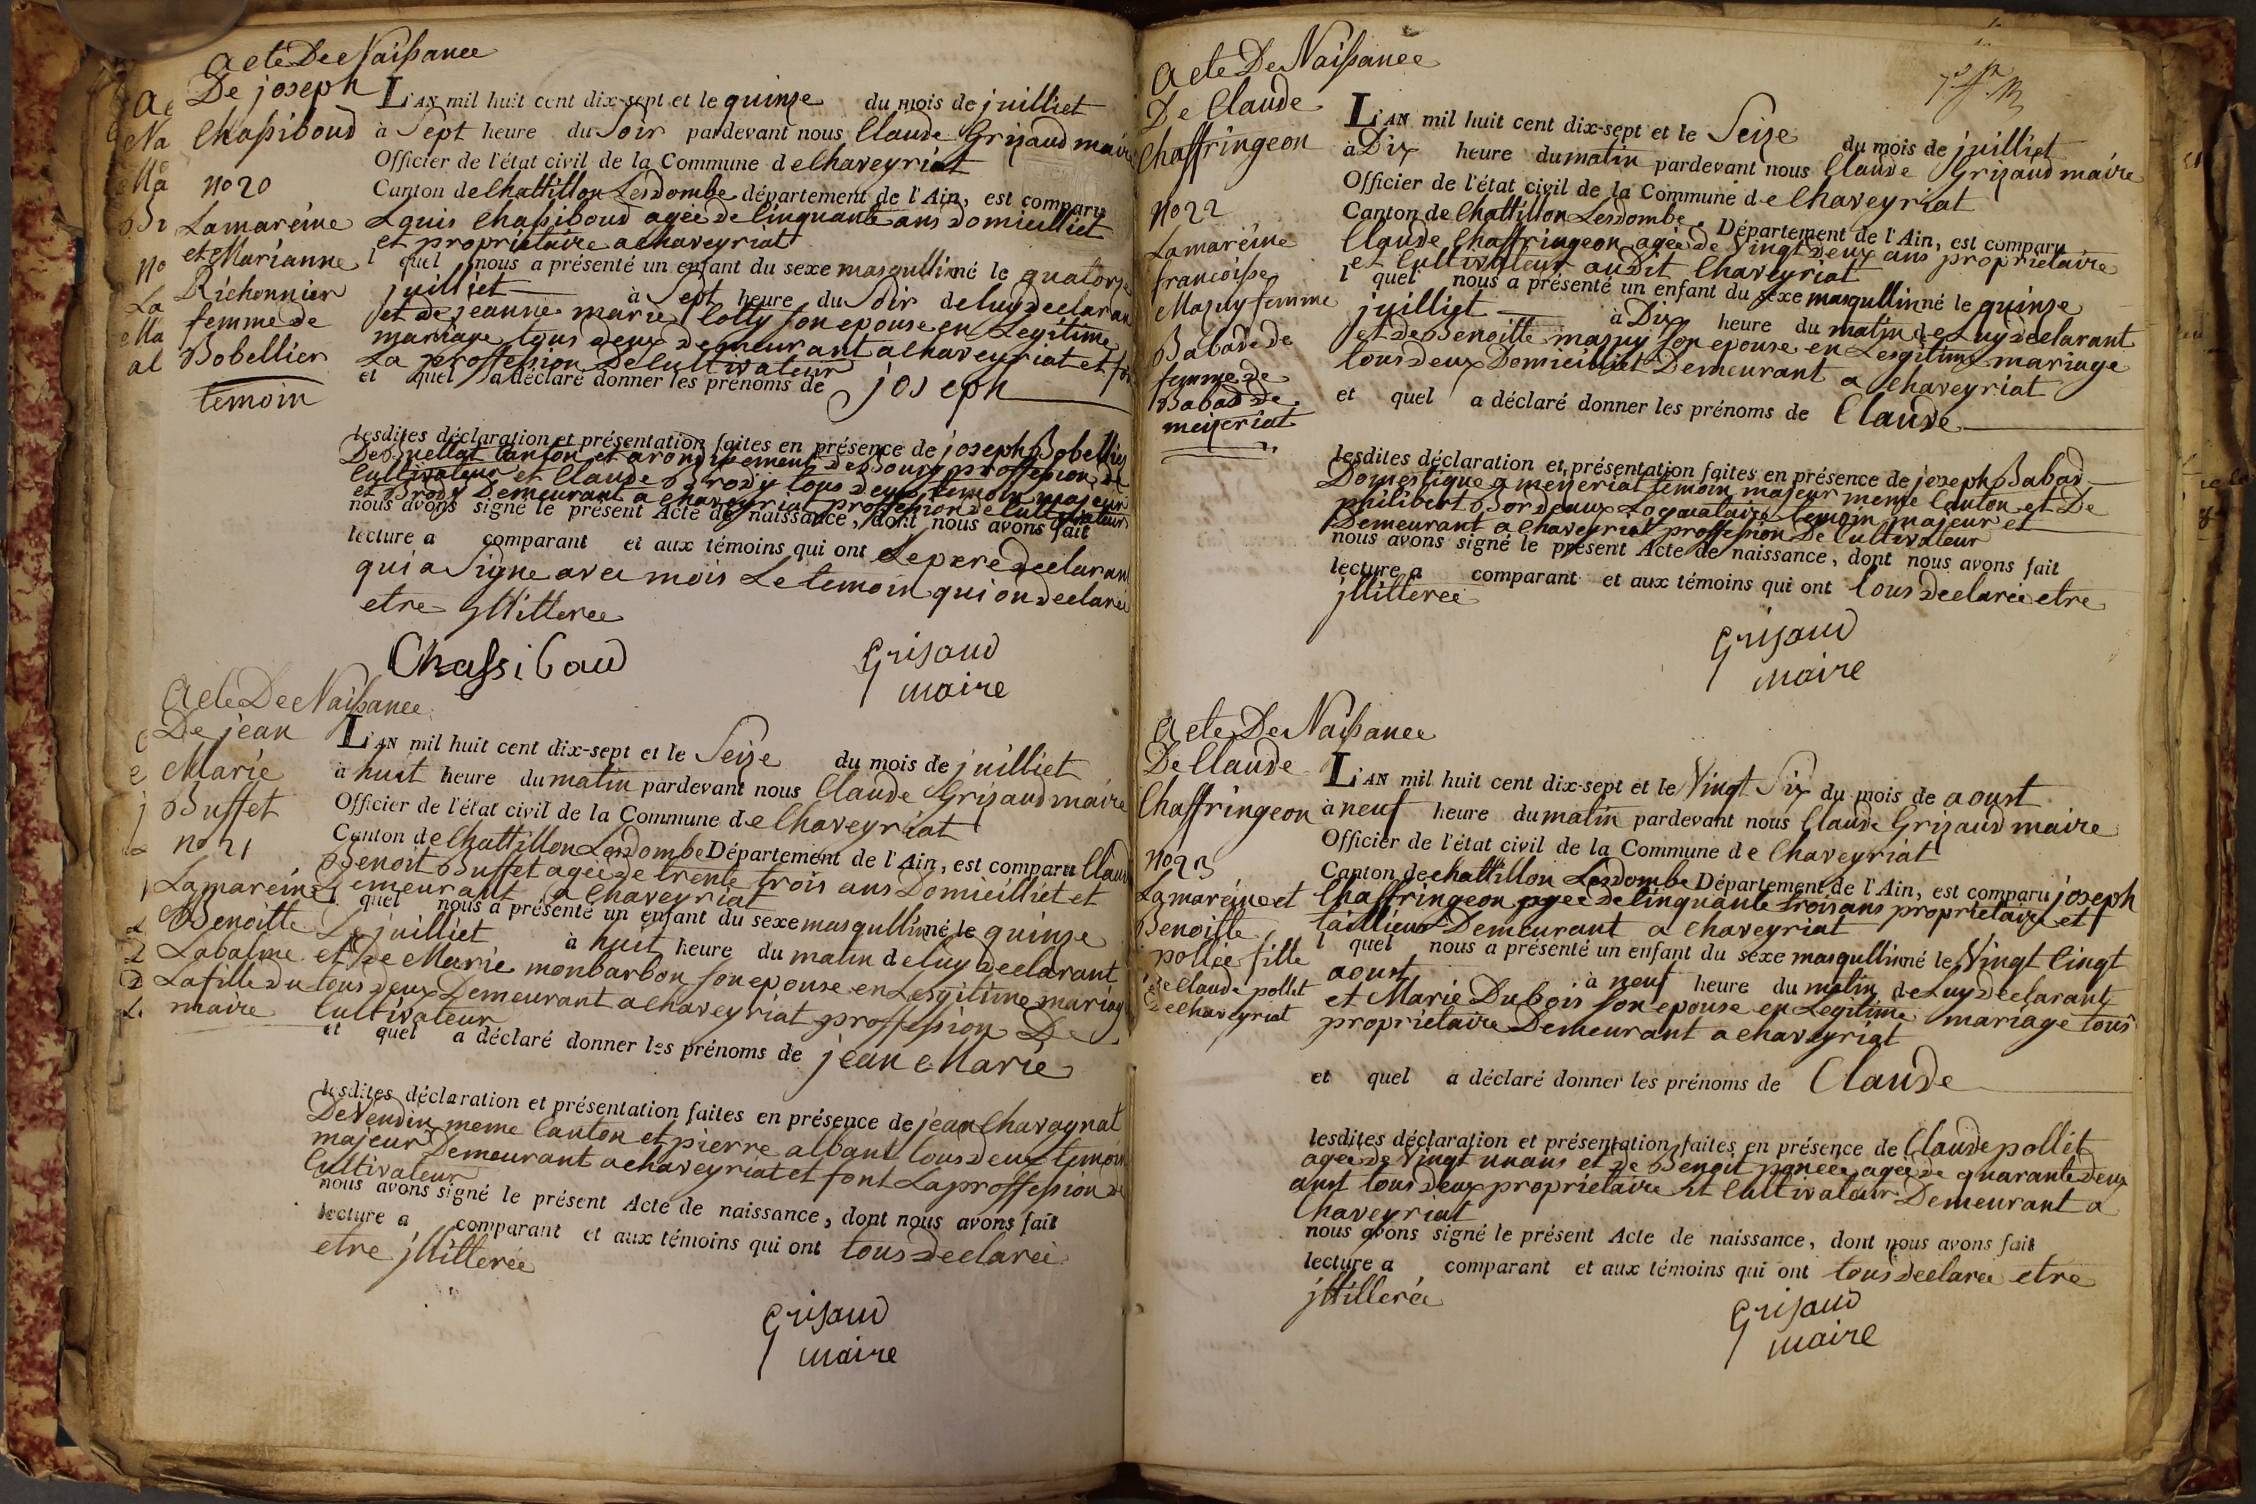 acte De Naissance
De joseph
Chassiboud
no 20
Lamareine
et Marianne
Richonnier
femme de
Bobellier
temoin
L'AN mil huit cent dix-sept et le quinze du mois de juilliet
à Sept heure du Soir pardevant nous Claude Grizaud maire
Officier de l'état civil de la Commune de Chaveyriat
Canton de Chattillon Lesdombe département de l'Ain, est comparu
Louis Chassiboud agée de Cinquante ans Domicilliet
et propriétaire a Chaveyriat
l quel nous a présenté un enfant du sexe masqullin né le quatorze
juilliet à Sept heure du Soir de luy declaran
et de jeanne marie Clotty son epouse en Legitime
mariage tous deux demeurant a Chaveyriat et font
La proffession De Cultivateur
et quel a déclaré donner les prénoms de joseph
lesdites déclaration et présentation faites en présence de joseph Bobellier
De Buellat Canton et arondissement de Bourg proffession de
Cultivateur et Claude Brody tous deux temoin majeur
et Brody Demeurant a Chaveyriat proffession de Cultivateur
nous avons signé le présent Acte de naissance, dont nous avons fait
lecture a comparant et aux témoins qui ont Le pere declaran
qui a Signe avec mois Le temoin qui on declarée
etre jllitteree
Chassiboud
Grisaud
maire
acte De Naissance
De jean
Marie
Buffet
no 21
Lamareine
Benoitte
Labalme
La fille du
maire
L'AN mil huit cent dix-sept et le Seize du mois de juilliet
à huit heure du matin pardevant nous Claude Grizaud maire
Officier de l'état civil de la Commune de Chaveyriat
Canton de Chattillon Lesdombe Département de l'Ain, est comparu Claude
Benoit Buffet agée de trente trois ans Domicilliet et
Demeurant a Chaveyriat
l quel nous a présenté un enfant du sexe masqullin né le quinze
De juilliet à huit heure du matin de luy Declarant
et de Marie monbarbon son epouse en Lesgitime mariag
tous deux Demeurant a Chaveyriat proffession De
Cultivateur
et quel a déclaré donner les prénoms de jean Marie
lesdites déclaration et présentation faites en présence de jean Chavagnat
De Vendin meme Canton et pierre albant tous deux temoin
majeur Demeurant a Chaveyriat et font La proffession de
Cultivateur
nous avons signé le présent Acte de naissance, dont nous avons fait
lecture a comparant et aux témoins qui ont tous Declareé
etre jllitterée
Grisaud
maire
acte De Naissance
De Claude
Chaffringeon
no 22
Lamareine
francoisse
Mazuy femme
Babad de
femme de
Babad de
mezeriat
L'AN mil huit cent dix-sept et le Seize du mois de juilliet
à Dix heure du matin pardevant nous Claude Grizaud maire
Officier de l'état civil de la Commune de Chaveyriat
Canton de Chattillon Lesdombe, Département de l'Ain, est comparu
Claude Chaffringeon agée de Vingt Deux ans propriétaire
et Cultivateur audit Chaveyriat
l quel nous a présenté un enfant du sexe masqullin né le quinze
juilliet à Dix heure du matin de Luy declarant
et de Benoitte mazuy son epouse en Lesgitime mariage
tous deux Domicilliet Demeurant a Chaveyriat
et quel a déclaré donner les prénoms de Claude
lesdites déclaration et présentation faites en présence de joseph Babad
Domestique a mezeriat temoin majeur meme Canton et De
philibert Bordeaux Loquataire temoin majeur et
Demeurant a Chaveyriat proffession De Cultivateur
nous avons signé le présent Acte de naissance, dont nous avons fait
lecture a comparant et aux témoins qui ont tous declareé etre
jllitereé
Grisaud
maire
acte De Naissance
De Claude
Chaffringeon
no 23
Lamareine et
Benoitte
pollée fille
de Claude pollet
de Chaveyriat
L'AN mil huit cent dix-sept et le Vingt Six du mois de aoust
à neuf heure du matin pardevant nous Claude Grizaud maire
Officier de l'état civil de la Commune de Chaveyriat
Canton de chattillon Lesdombe Département de l'Ain, est comparu joseph
Chaffringeon agée de Cinquante trois ans propriétaire et
taillieur Demeurant a Chaveyriat
l quel nous a présenté un enfant du sexe masqullin né le Vingt Cingt
aoust à neuf heure du matin de Luy declarant
et Marie Dubois son epouse en Legitime mariage tous
propriétaire Demeurant a Chaveyriat
et quel a déclaré donner les prénoms de Claude
lesdites déclaration et présentation faites en présence de Claude pollet
agée de Vingt un ans et de Benoit agée de quarante deux
ans tous deux propriétaire et Cultivateur Demeurant a
Chaveyriat
nous avons signé le présent Acte de naissance, dont nous avons fait
lecture a comparant et aux témoins qui ont tous declareé etre
jllitlerée
Grisaud
maire